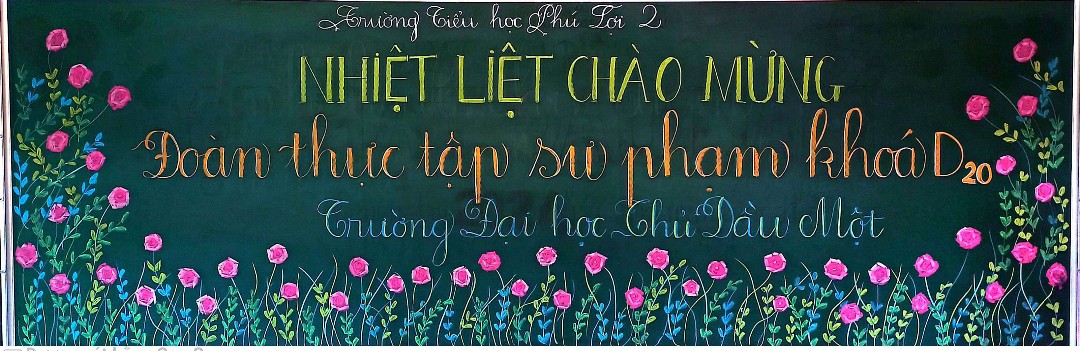 Trường Tiểu học Phú Lợi 2
NHIỆT LIỆT CHÀO MỪNG
Đoàn thực tập sư phạm khoá D20
Trường Đại học Thủ Dầu Một